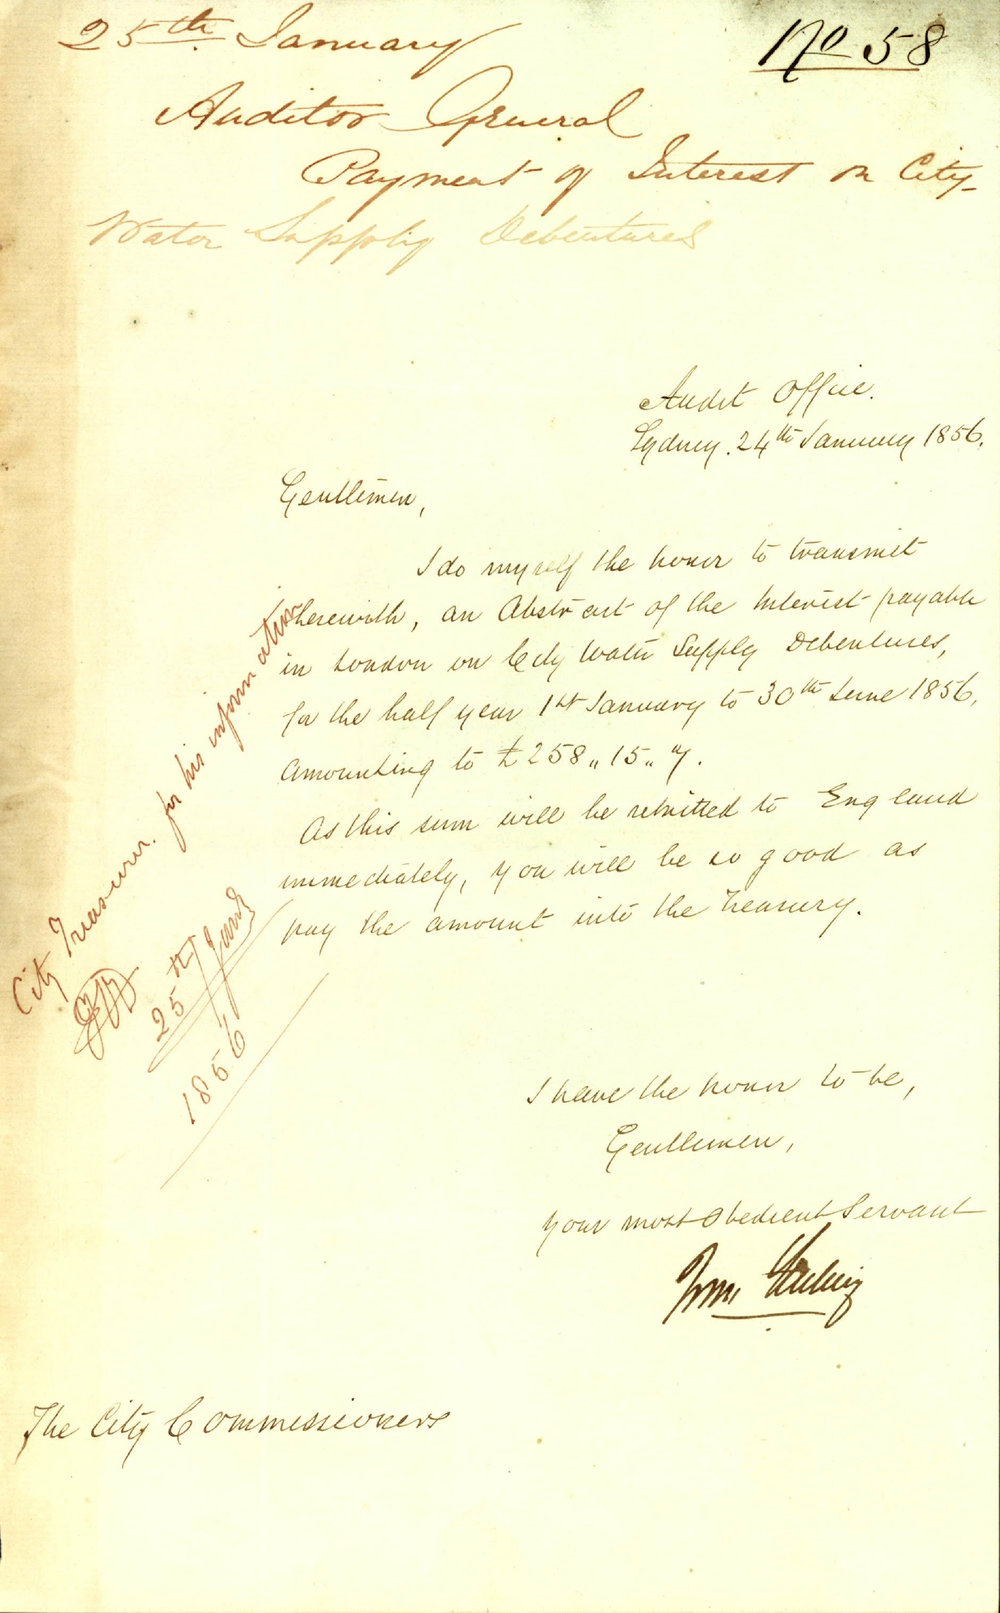 25th January
No 58
Auditor General
Payment of Interest on City
Water Supply Debentures
Audit Office.
Sydney. 24th January 1856.
Gentlemen,
I do myself the honor to transmit
herewith, an Abstract of the Interest payable
in London on City Water Supply Debentures,
for the half year 1st January to 30th June 1856,
amounting to £258,,15,,7.
As this sum will be remitted to England
immediately, you will be so good as
pay the amount into the Treasury.
City Treasurer. for his information
25th Jany
1856
I have the honor to be,
Gentlemen,
Your most obedient Servant
Wm
The City Commissioners